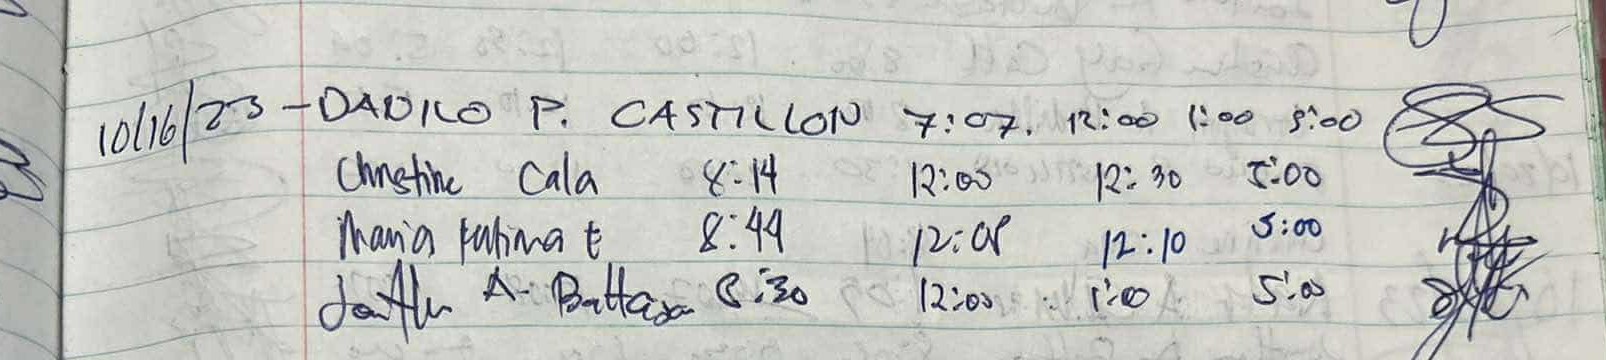 10/16/23 - DANILO P. CASTILLON 7:07. 12:00 1:00 5:00
Christine Cala 8:14 12:00 12:30 5:00
Maria Fatima E 8:44 12:08 12:10 5:00
A. 8:30 12:00 1:00 5:00